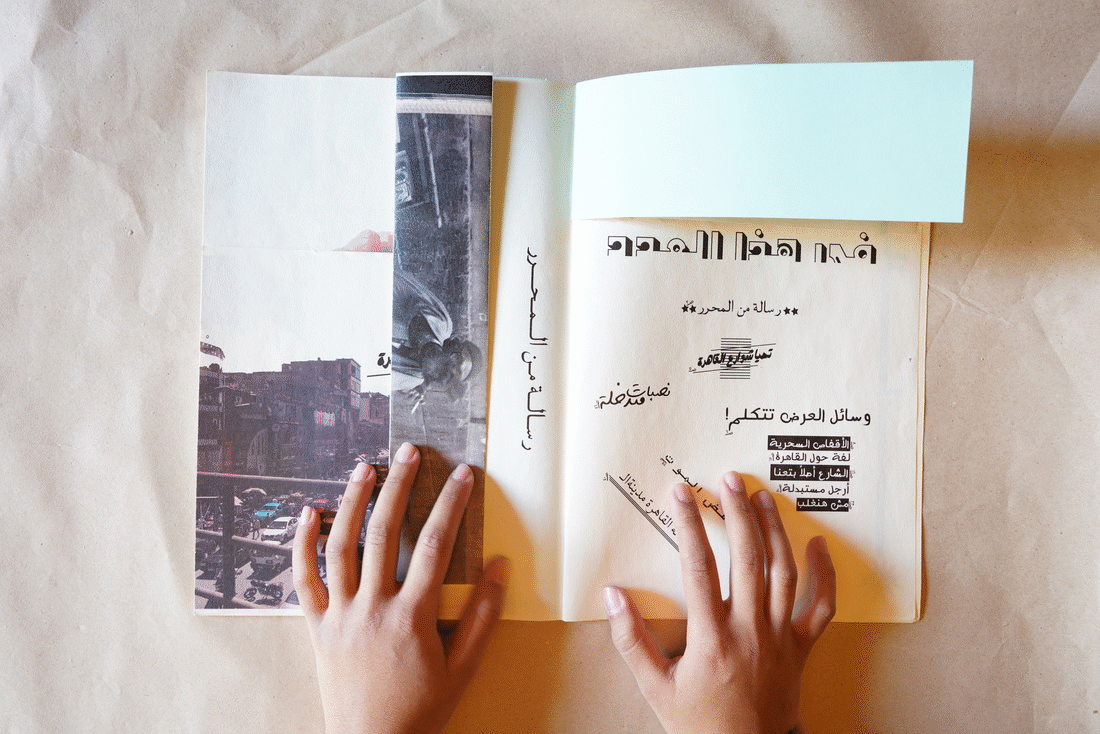 في هذا العدد
رسالة من المحرر
تحيا شوارع القاهرة
نصبات
متدخلة
وسائل العرض تتكلم!
الأقفاص السحرية
لفة حول القاهرة
الشارع أملاً بتعنا
أرجل مستبدلة
مش هنغلب
القاهرة مدينة ال
رسالة من المحرر